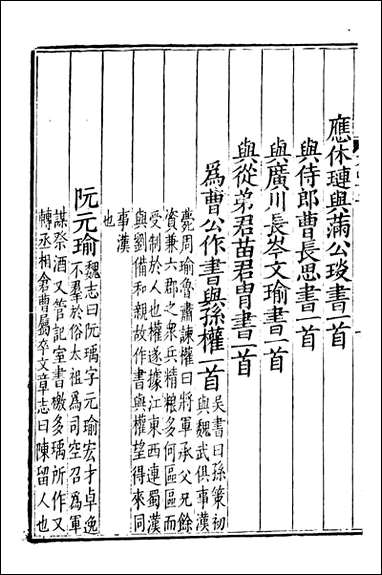 應休璉與滿公琰書一首
與侍郎曹長思書一首
與廣川長岑文瑜書一首
與從弟君苗君胄書一首
爲曹公作書與孫權一首
吴書曰孫策初
與魏武俱事漢
薨周瑜魯肅諫權曰將軍承父兄餘
資兼六郡之衆兵精粮多何區區而
受制於人也權遂據江東西連蜀漢
與劉備和親故作書與權望得來同
事漢
也
阮元瑜
魏志曰阮瑀字元瑜宏才卓逸
不羣於俗太祖爲司空召爲軍
謀祭酒又管記室書檄多瑀所作又
轉丞相倉曹屬卒文章志曰陳留人也